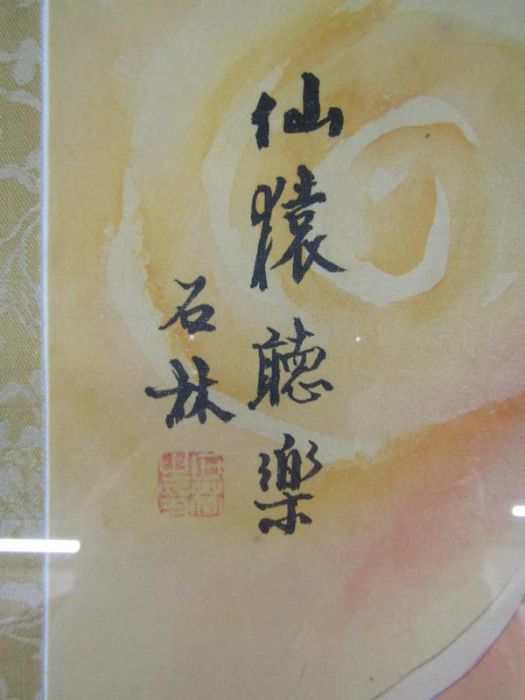 仙猿聽樂
石林